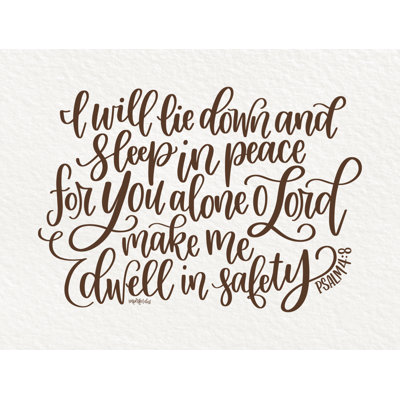 I will lie down and
sleep in peace
for you alone O Lord
make me
dwell in safety
PSALM 4:8